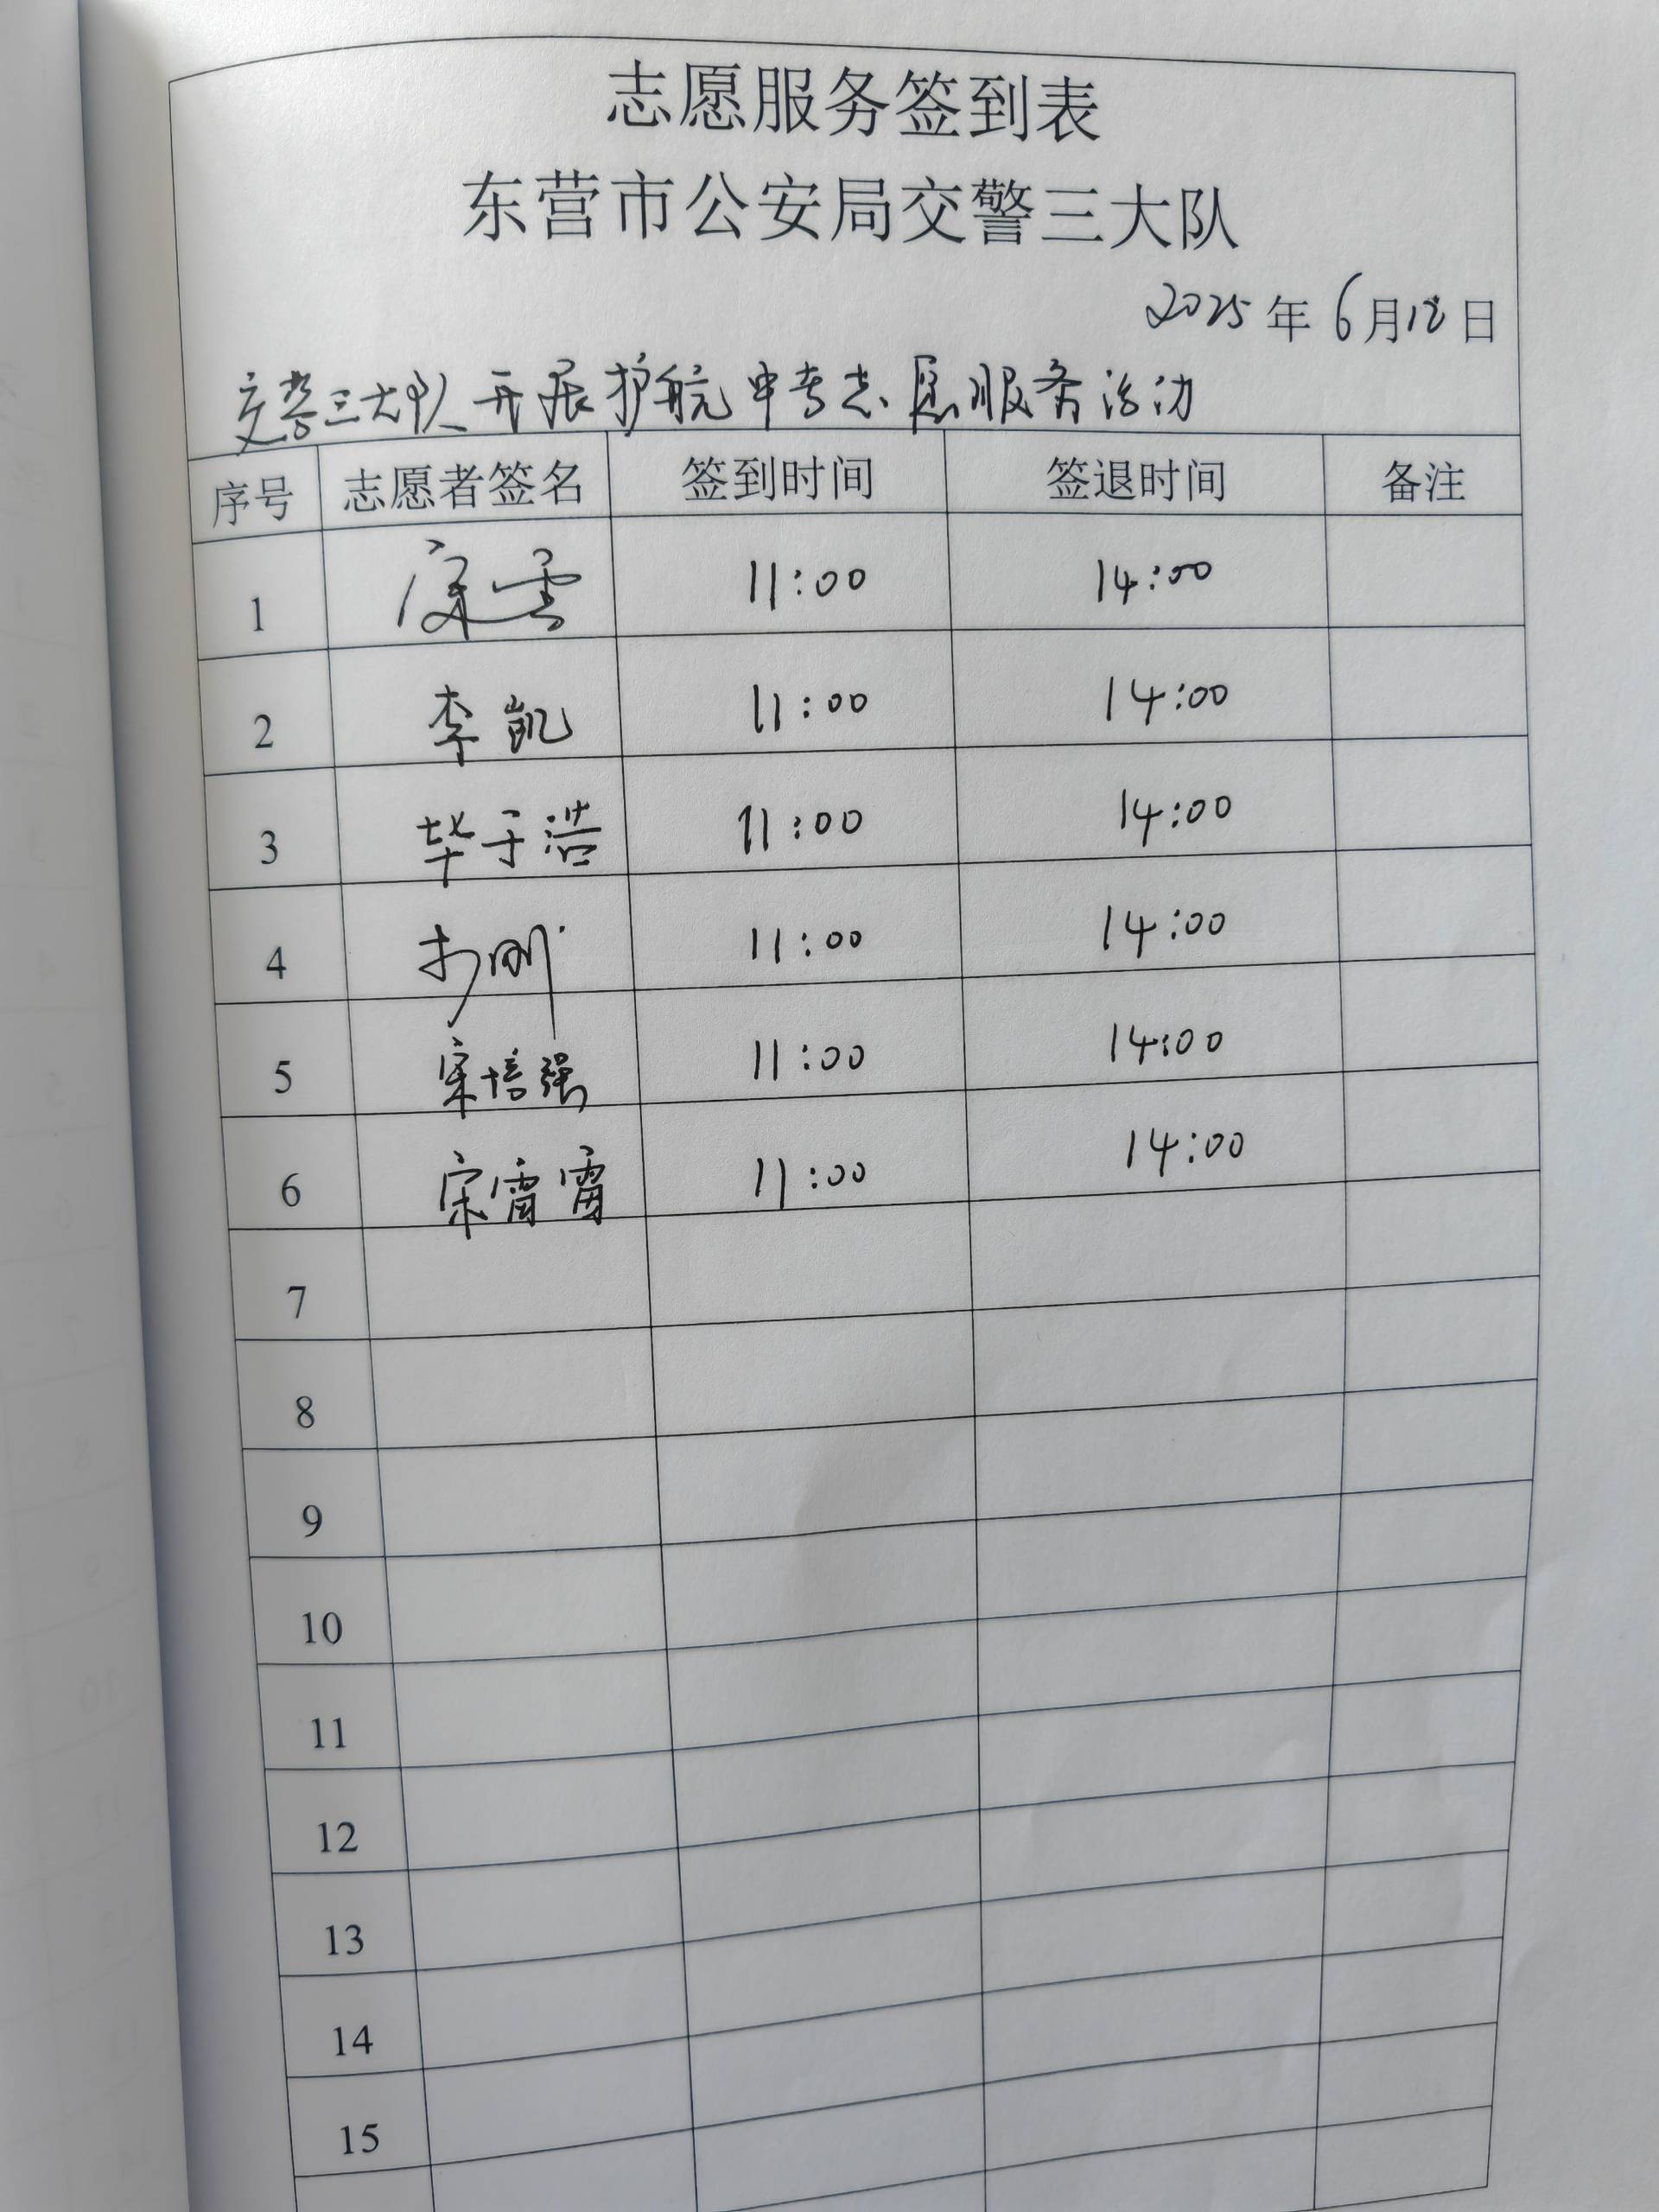 志愿服务签到表
东营市公安局交警三大队
2025年6月18日
交警三大队开展护航中考志愿服务活动
序号 志愿者签名 签到时间 签退时间 备注
1 11:00 14:00
2 李凯 11:00 14:00
3 毕于浩 11:00 14:00
4 11:00 14:00
5 宋培强 11:00 14:00
6 宋雷雷 11:00 14:00
7
8
9
10
11
12
13
14
15